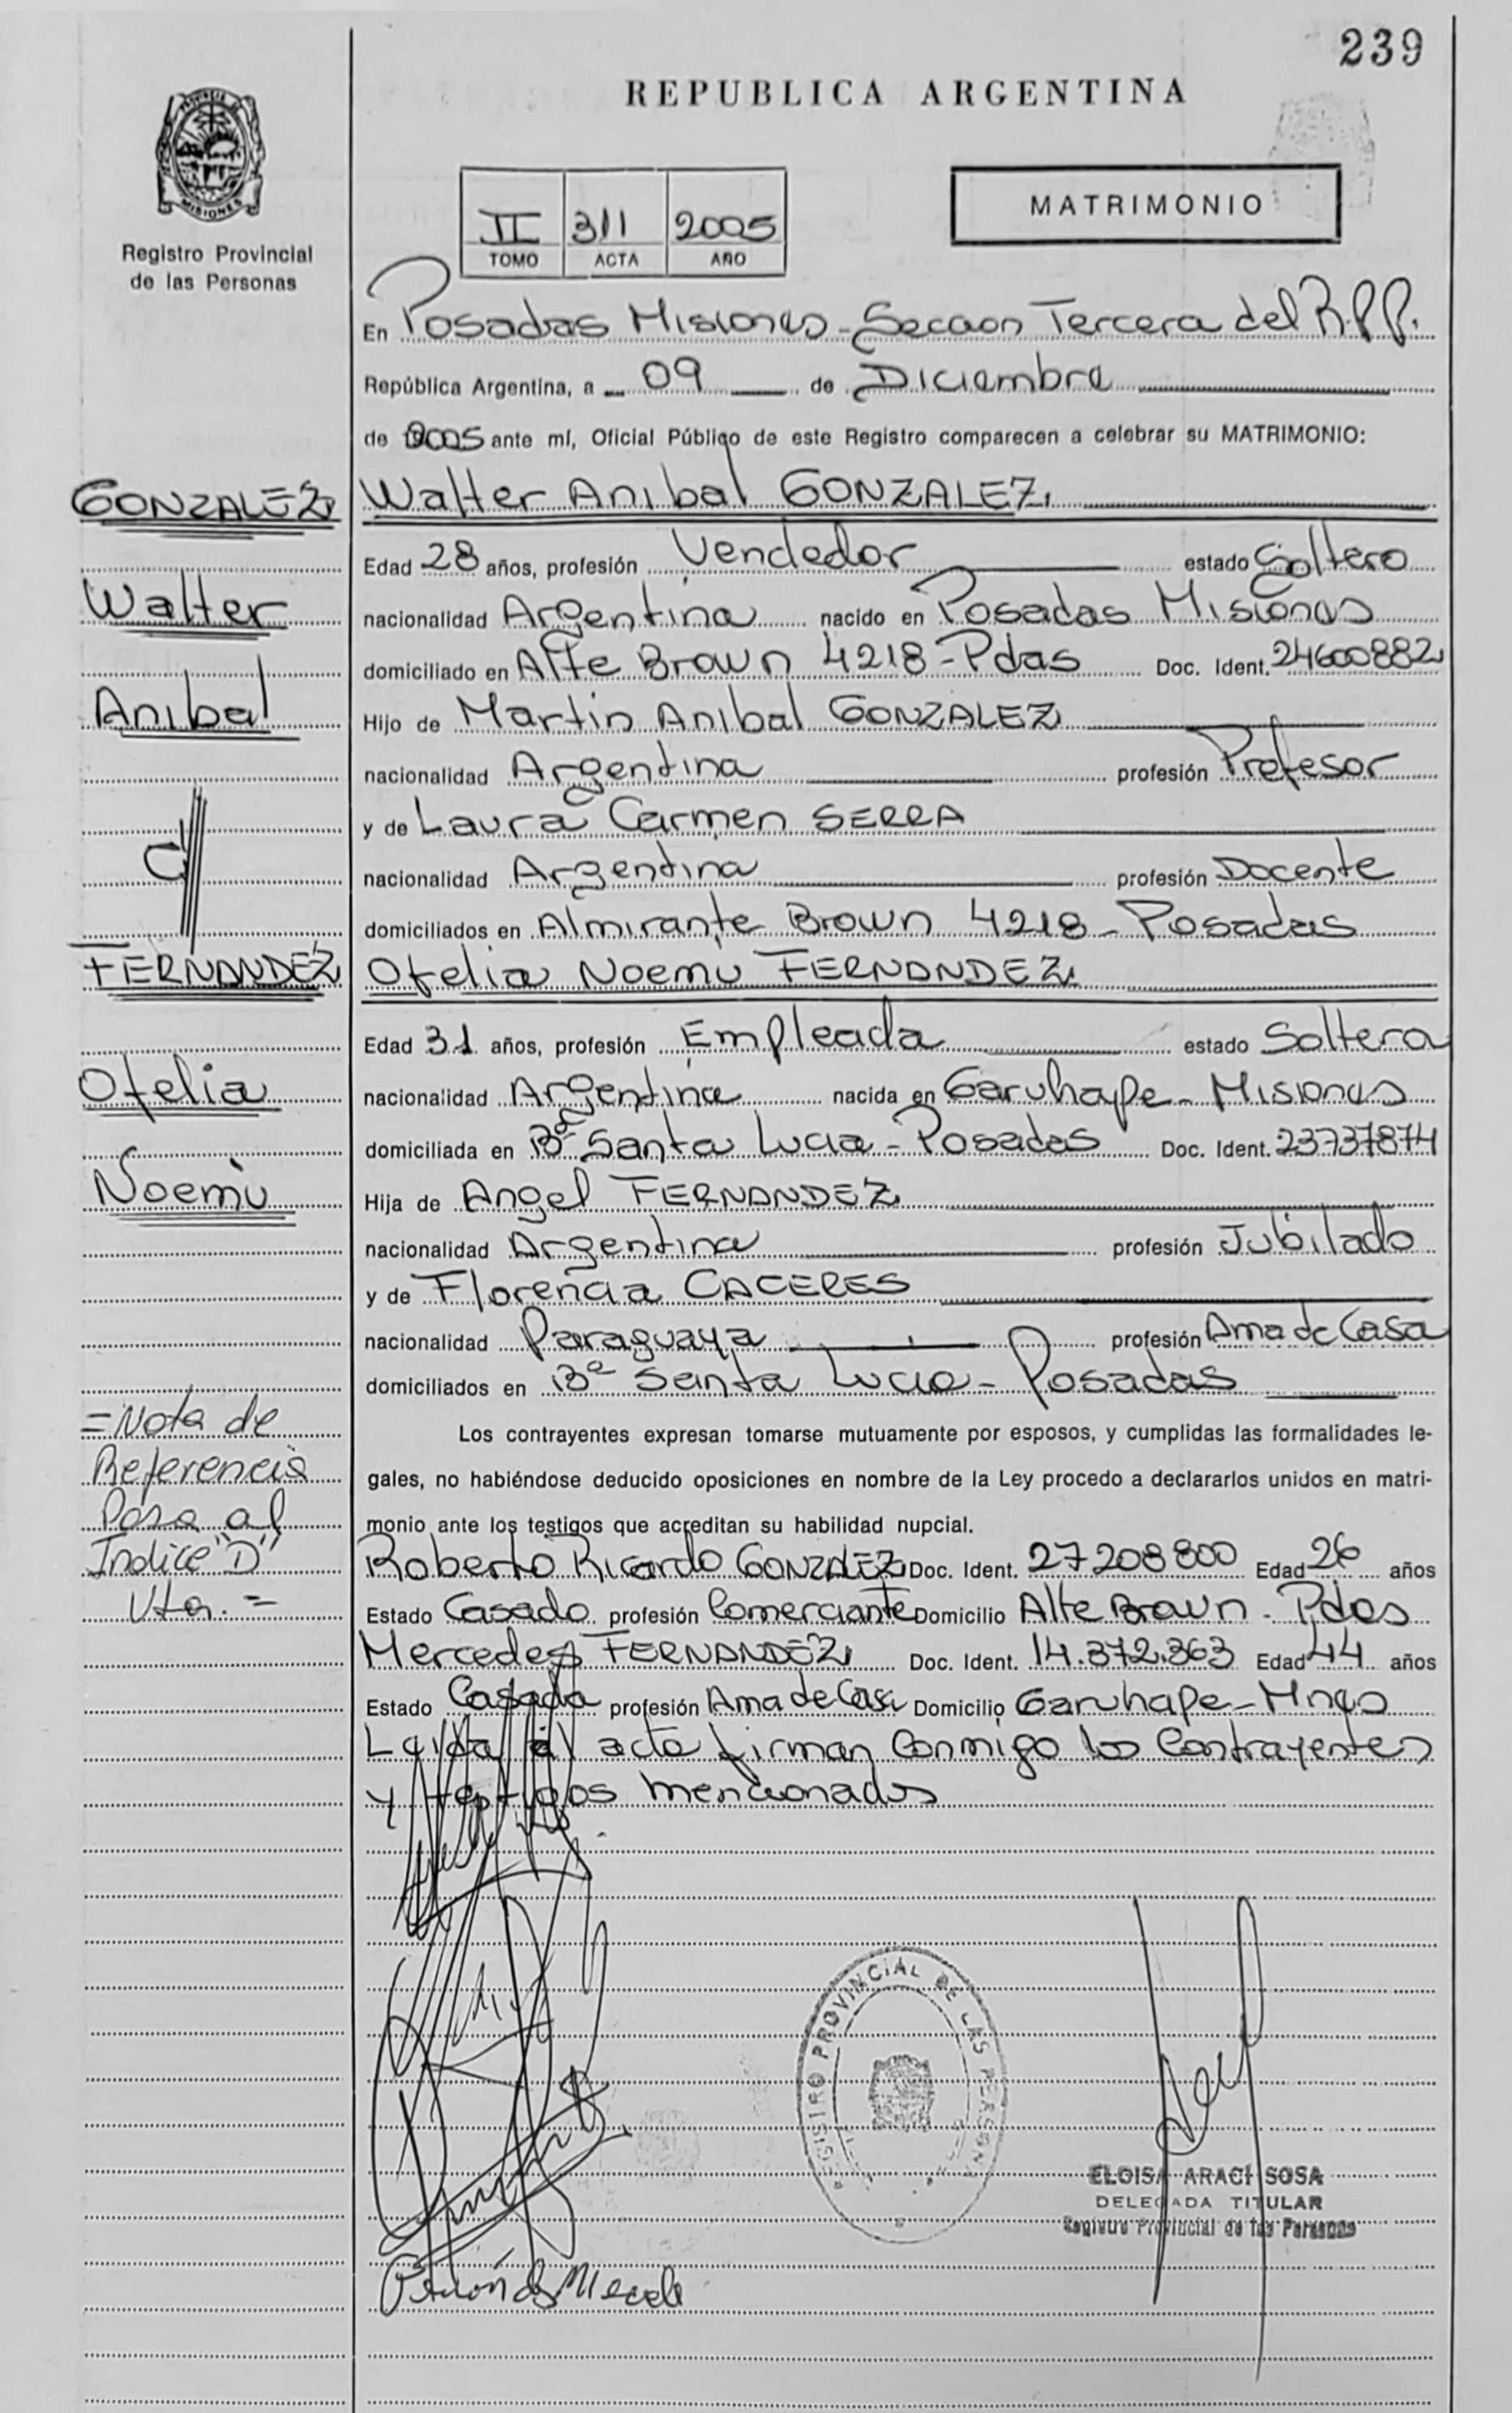 239
REPUBLICA ARGENTINA
PROVINCIA DE
MISIONES
Registro Provincial
de las Personas
II 311 2005
TOMO ACTA AÑO
MATRIMONIO
En Posadas Misiones - Seccion Tercera del R.P.P.
República Argentina, a 09 de Diciembre
de 2005 ante mí, Oficial Público de este Registro comparecen a celebrar su MATRIMONIO:
GONZALEZ
Walter
Anibal
c/
FERNANDEZ
Ofelia
Noemi
=Nota de
Referencia
Pasa al
Indice "D"
Vta. =
Walter Anibal GONZALEZ
Edad 28 años, profesión Vendedor estado Soltero
nacionalidad Argentina nacido en Posadas Misiones
domiciliado en Alte Brown 4218 - Pdas Doc. Ident. 24600882
Hijo de Martin Anibal GONZALEZ
nacionalidad Argentina profesión Profesor
y de Laura Carmen SERRA
nacionalidad Argentina profesión Docente
domiciliados en Almirante Brown 4218 - Posadas
Ofelia Noemi FERNANDEZ
Edad 31 años, profesión Empleada estado Soltera
nacionalidad Argentina nacida en Garuhape - Misiones
domiciliada en Bº Santa Lucia - Posadas Doc. Ident. 23737874
Hija de Angel FERNANDEZ
nacionalidad Argentina profesión Jubilado
y de Florencia CACERES
nacionalidad Paraguaya profesión Ama de Casa
domiciliados en Bº Santa Lucia - Posadas
Los contrayentes expresan tomarse mutuamente por esposos, y cumplidas las formalidades le-
gales, no habiéndose deducido oposiciones en nombre de la Ley procedo a declararlos unidos en matri-
monio ante los testigos que acreditan su habilidad nupcial.
Roberto Ricardo GONZALEZ Doc. Ident. 27208800 Edad 26 años
Estado Casado profesión Comerciante Domicilio Alte Brown - Pdas
Mercedes FERNANDEZ Doc. Ident. 14.372.363 Edad 44 años
Estado Casada profesión Ama de Casa Domicilio Garuhape - Mnes
Leida el acta firman conmigo los Contrayentes
y testigos mencionados
REGISTRO PROVINCIAL DE LAS PERSONAS
ELOISA ARACI SOSA
DELEGADA TITULAR
Registro Provincial de las Personas